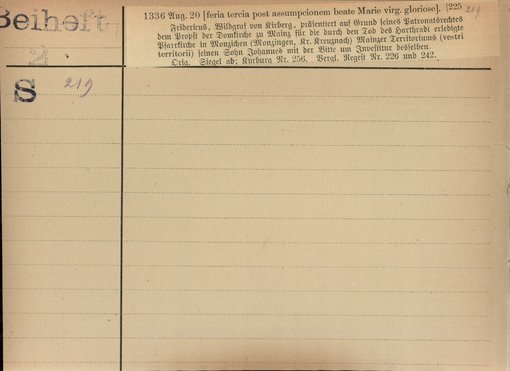 Beiheft
2
S 219
1336 Aug. 20 [feria tercia post assumpcionem beate Marie virg. gloriose]. [225 219
Fridericus, Wildgraf von Kirberg, präsentiert auf Grund seines Patronatsrechtes
dem Propst der Domkirche zu Mainz für die durch den Tod des Harthradi erledigte
Pfarrkirche in Monzichen (Monzingen, Kr. Kreuznach) Mainzer Territoriums (vestri
territorii) seinen Sohn Johannes mit der Bitte um Investitur desselben.
Orig. Siegel ab; Kyrburg Nr. 256. Vergl. Regest Nr. 226 und 242.